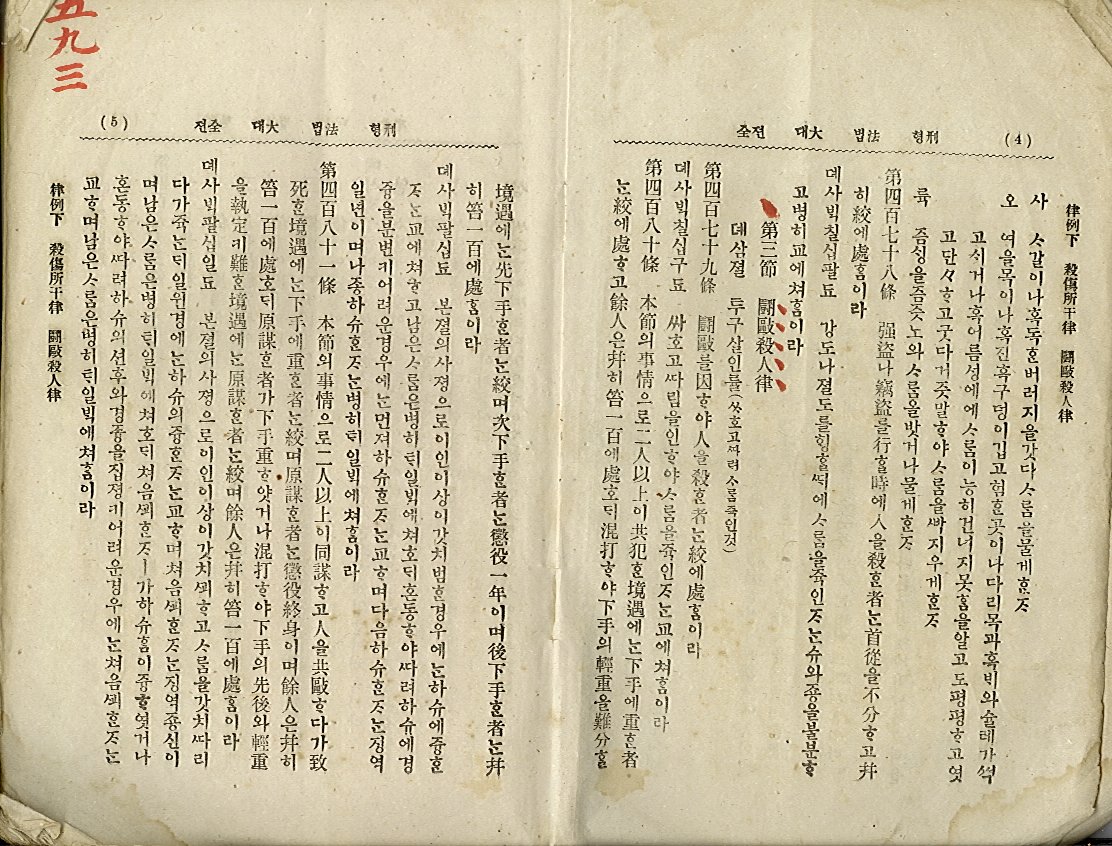 五九三
(4) 刑형 法법 大대 전全
律例下 殺傷所干律 鬪毆殺人律
사 ᄉᆞ갈이나혹독ᄒᆞᆫ버러지을갓다ᄉᆞ름을물게ᄒᆞᆫᄌᆞ
오 여을목이나혹진흑구덩이깁고험ᄒᆞᆫ곳이나다리목과혹빅와슐레가석
고서거나혹어름셩에에ᄉᆞ름이능히건너지못ᄒᆞᆷ을알고도평평ᄒᆞ고엿
고단々ᄒᆞ고굿다거즛말ᄒᆞ야ᄉᆞ름을ᄲᅡ지우게ᄒᆞᆫᄌᆞ
륙 즘싱을즘즛노와ᄉᆞ름을밧거나물게ᄒᆞᆫᄌᆞ
第四百七十八條 强盜나竊盜를行ᄒᆞᆯ時에人을殺ᄒᆞᆫ者ᄂᆞᆫ首從을不分ᄒᆞ고幷
히絞에處ᄒᆞᆷ이라
뎨사빅칠십팔됴 강도나졀도를힝ᄒᆞᆯᄯᅢ에ᄉᆞ름을쥭인ᄌᆞᄂᆞᆫ슈와죵을불분ᄒᆞ
고병히교에쳐ᄒᆞᆷ이라
第三節 鬪毆殺人律
뎨삼졀 투구살인률(싸호고ᄯᅡ려ᄉᆞ름쥭인것)
第四百七十九條 鬪毆를因ᄒᆞ야人을殺ᄒᆞᆫ者ᄂᆞᆫ絞에處ᄒᆞᆷ이라
뎨사빅칠십구됴 싸호고ᄯᅡ림을인ᄒᆞ야ᄉᆞ름을쥭인ᄌᆞᄂᆞᆫ교에쳐ᄒᆞᆷ이라
第四百八十條 本節의事情으로二人以上이共犯ᄒᆞᆫ境遇에ᄂᆞᆫ下手에重ᄒᆞᆫ者
ᄂᆞᆫ絞에處ᄒᆞ고餘人은幷히笞一百에處ᄒᆞ되混打ᄒᆞ야下手의輕重을難分ᄒᆞᆯ
(5) 刑형 法법 大대 전全
境遇에ᄂᆞᆫ先下手ᄒᆞᆫ者ᄂᆞᆫ絞며次下手ᄒᆞᆫ者ᄂᆞᆫ懲役一年이며後下手ᄒᆞᆫ者ᄂᆞᆫ幷
히笞一百에處ᄒᆞᆷ이라
뎨사빅팔십됴 본졀의사졍으로이인이상이갓치범ᄒᆞᆫ경우에ᄂᆞᆫ하슈에즁ᄒᆞᆫ
ᄌᆞᄂᆞᆫ교에쳐ᄒᆞ고남은ᄉᆞ름은병히틱일빅에쳐호딕혼동ᄒᆞ야ᄯᅡ려하슈에경
즁을분변키어려운경우에ᄂᆞᆫ먼져하슈ᄒᆞᆫᄌᆞᄂᆞᆫ교며다음하슈ᄒᆞᆫᄌᆞᄂᆞᆫ징역
일년이며나죵하슈ᄒᆞᆫᄌᆞᄂᆞᆫ병히틱일빅에쳐ᄒᆞᆷ이라
第四百八十一條 本節의事情으로二人以上이同謀ᄒᆞ고人을共毆ᄒᆞ다가致
死ᄒᆞᆫ境遇에ᄂᆞᆫ下手에重ᄒᆞᆫ者ᄂᆞᆫ絞며原謀ᄒᆞᆫ者ᄂᆞᆫ懲役終身이며餘人은幷히
笞一百에處호딕原謀ᄒᆞᆫ者가下手重ᄒᆞ얏거나混打ᄒᆞ야下手의先後와輕重
을執定키難ᄒᆞᆫ境遇에ᄂᆞᆫ原謀ᄒᆞᆫ者ᄂᆞᆫ絞며餘人은幷히笞一百에處ᄒᆞᆷ이라
뎨사빅팔십일됴 본졀의사졍으로이인이상이갓치ᄭᅬᄒᆞ고ᄉᆞ름을갓치ᄯᅡ리
다가쥭ᄂᆞᆫ디일원경에ᄂᆞᆫ하슈의즁ᄒᆞᆫᄌᆞᄂᆞᆫ교ᄒᆞ며쳐음ᄭᅬᄒᆞᆫᄌᆞᄂᆞᆫ징역죵신이
며남은ᄉᆞ름은병히틱일빅에쳐호딕쳐음ᄭᅬᄒᆞᆫᄌᆞㅣ가하슈ᄒᆞᆷ이즁ᄒᆞ엿거나
혼동ᄒᆞ야ᄯᅡ려하슈의션후와경즁을집졍키어려운경우에ᄂᆞᆫ쳐음ᄭᅬᄒᆞᆫᄌᆞᄂᆞᆫ
교ᄒᆞ며남은ᄉᆞ름은병히틱일빅에쳐ᄒᆞᆷ이라
律例下 殺傷所干律 鬪毆殺人律